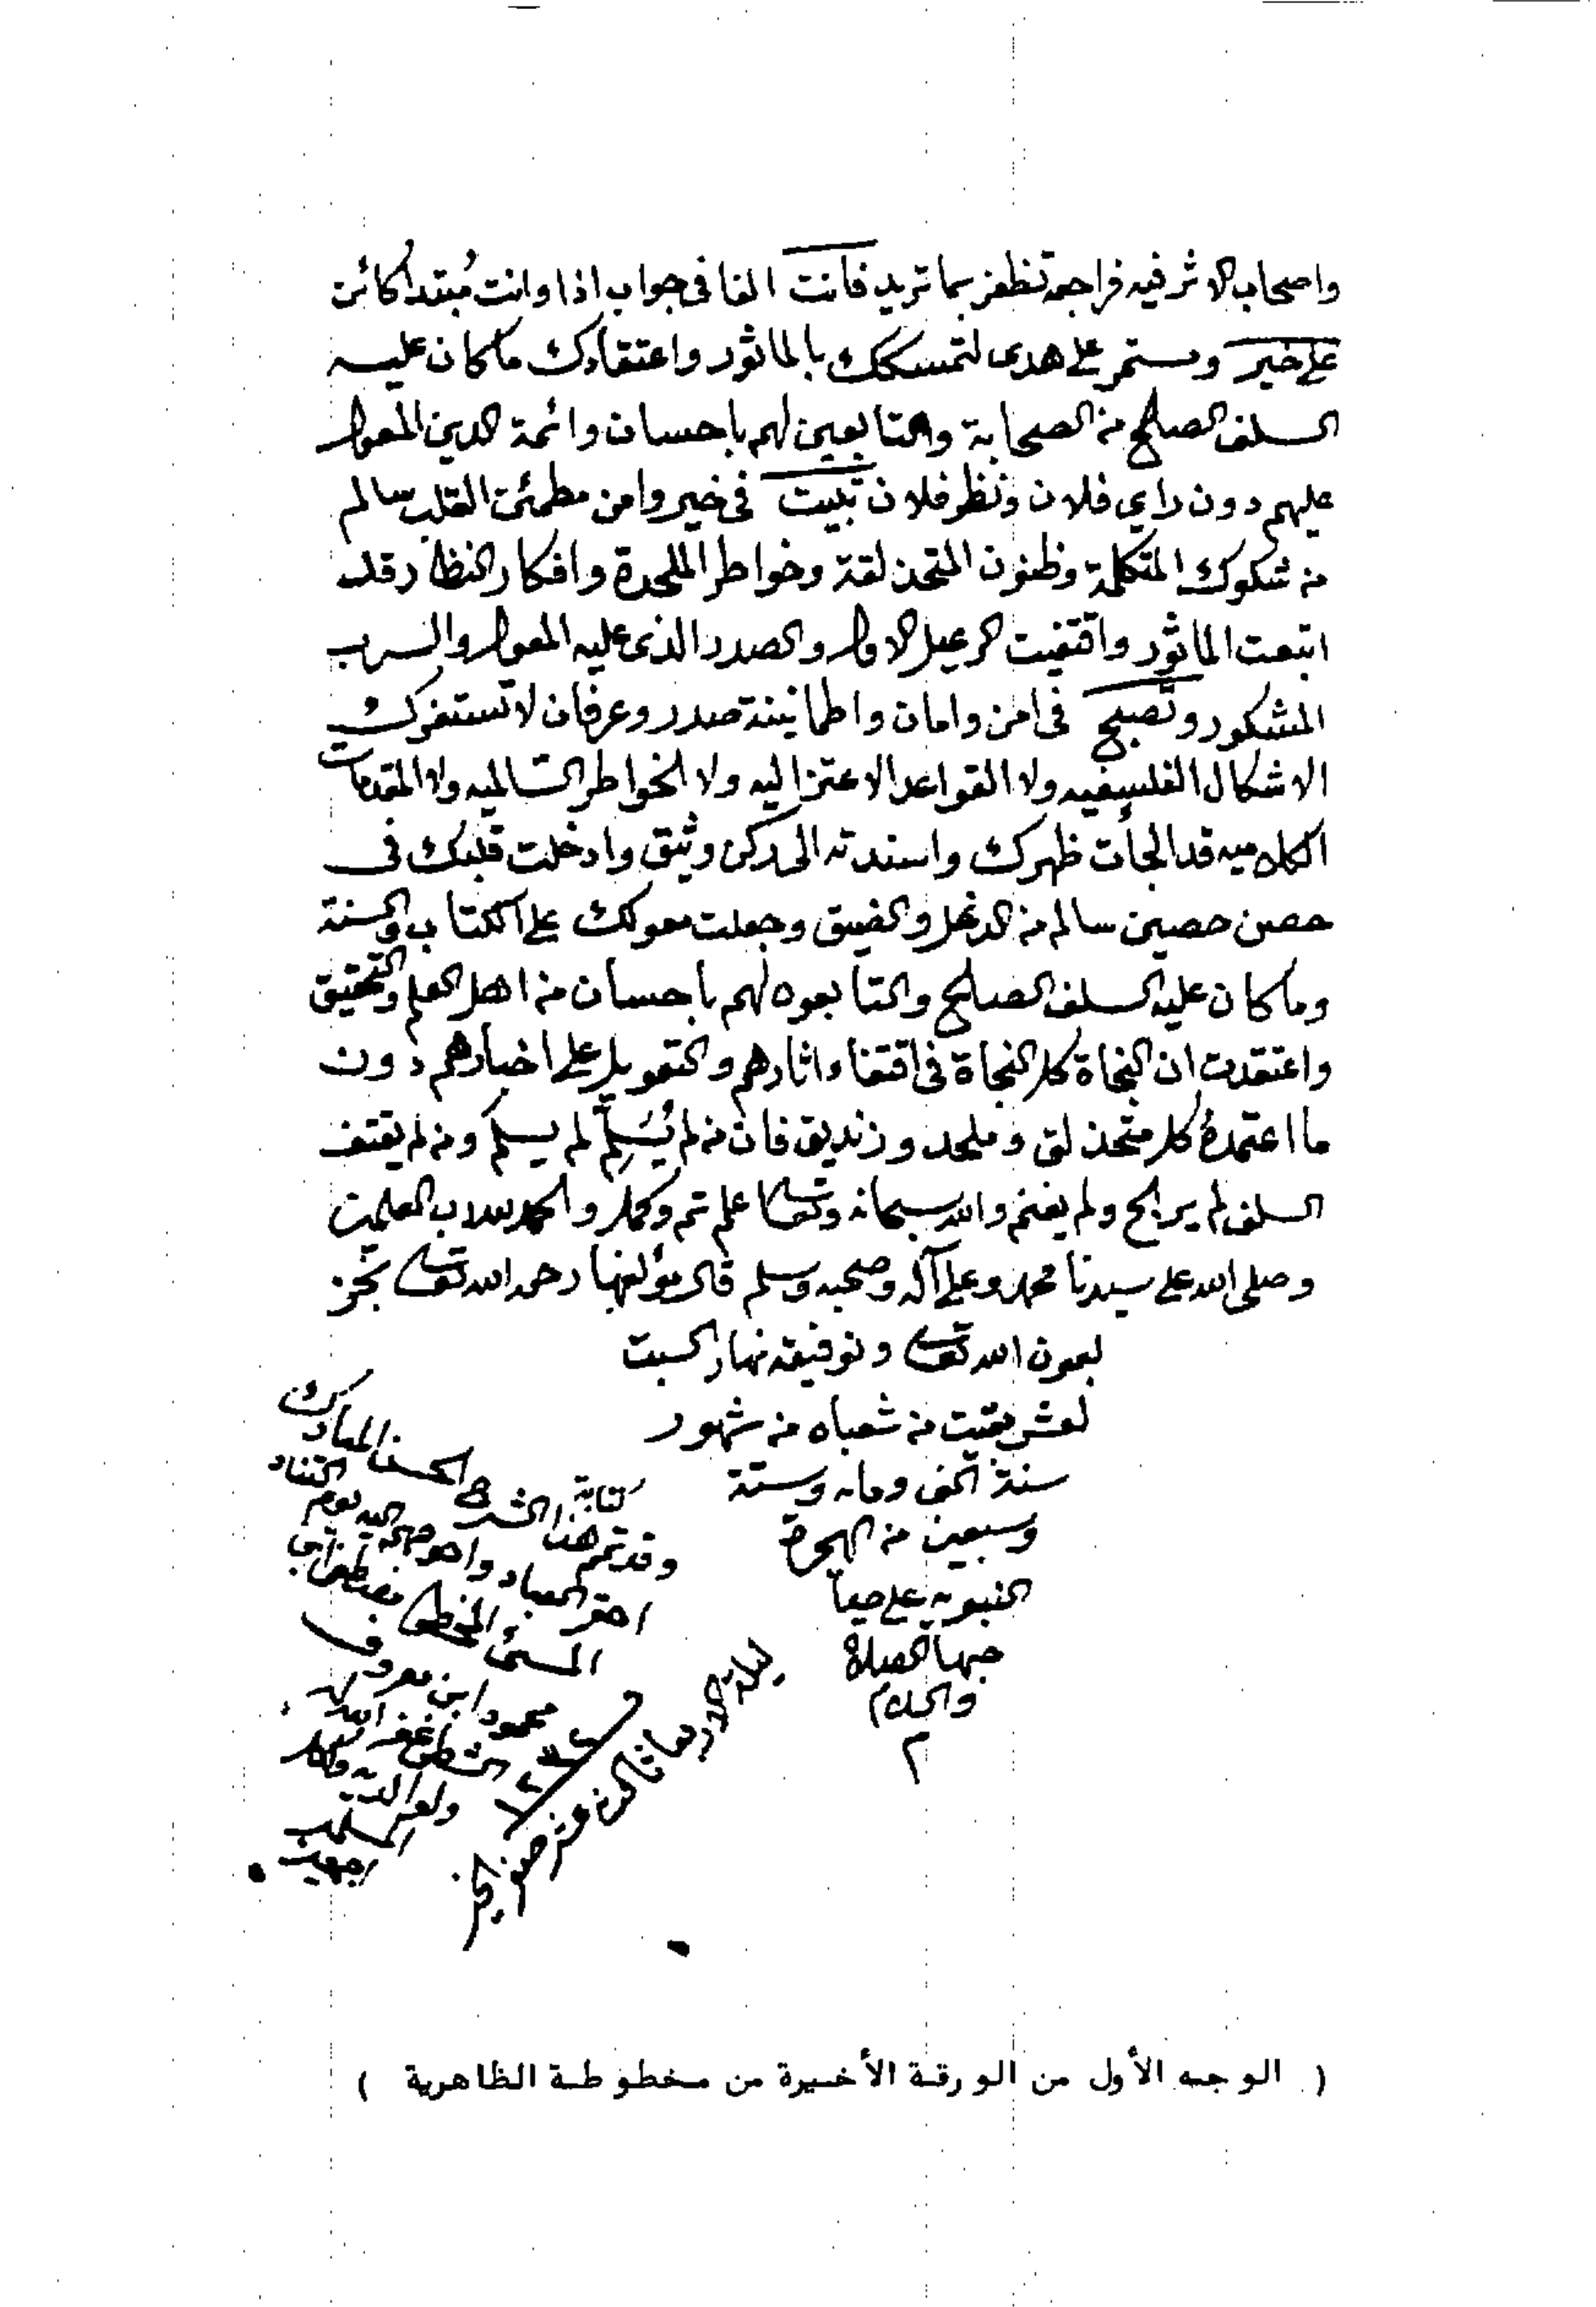 واصحاب الاثر فيه فراجعه تظفر بما تريد فانت الفا في جواب اذا وانت مُبتدا كائن
على خير ومستمر على هدى لتمسكك بالماثور واعتقادك ما كان عليه
السلف الصالح من الصحابة والتابعين لهم باحسان وائمة الدين المعول
عليهم دون راي فلان ونظر فلان تبيت في خير وامن مطمئن القلب سالم
من شكوك المتكلمة وظنون المتحذلقة وخواطر الملحدة وافكار النظار قد
اتبعت الماثور واقتفيت الرعيل الاول والصدر الذي عليه المعول والسرب
المشكور وتصبح في امن وامان واطمانينة صدر وعرفان لا تستفزك
الاشكال الفلسفيه ولا القواعد الاعتزاليه ولا الخواطر السالميه ولا المقدمات
الكلاميه قد الجأت ظهرك واسندته الى ركن وثيق وادخلت قلبك في
حصن حصين سالم من الدغل والضيق وجعلت معولك على الكتاب والسنة
وما كان عليه السلف الصالح والتابعون لهم باحسان من اهل العلم والتحقيق
واعتقدت ان النجاة كل النجاة في اقتفاء اثارهم والتعويل على اخبارهم دون
ما اعتمدهُ كل متحذلق وملحد وزنديق فان من لم يُسَلِّم لم يسلم ومن لم يقتف
السلف لم يربح ولم يغنم والله سبحانه وتعالى اعلم تم وكمل والحمد لله رب العلمين
وصلى الله على سيدنا محمد وعلى آله وصحبه وسلم قال مؤلفها رحمه الله تعالى نجز
بعون الله تعالى وتوفيقه نهار السبت
لعشر بقيت من شعبان من شهور
سنة الف ومايه وستة
وسبعين من الهجرة
النبويه على صا
حبها الصلاة
والسلام
م
وقد تم كتابة هذا الشرح الحسن المبارك
احقر العباد واحوجهم اليه يوم التناد
المسئ المخطي مصطفى ابن
محمود ابن معروف
الشطي غفر الله له
ولوالديه ولكل
المسلمين
اجمعين
( الوجه الأول من الورقة الأخيرة من مخطوطة الظاهرية )